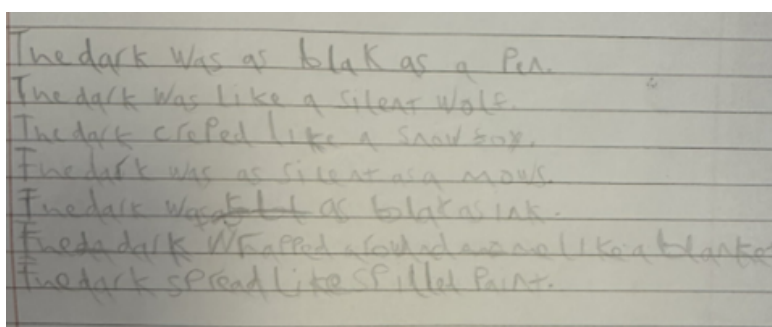 The dark was as blak as a Pen.
The dark was like a silent wolf.
The dark creped like a snow fox.
The dark was as silent as a mows.
The dark was as blak as ink.
The dark wrapped around me like a blanke
The dark spread like spilled Paint.